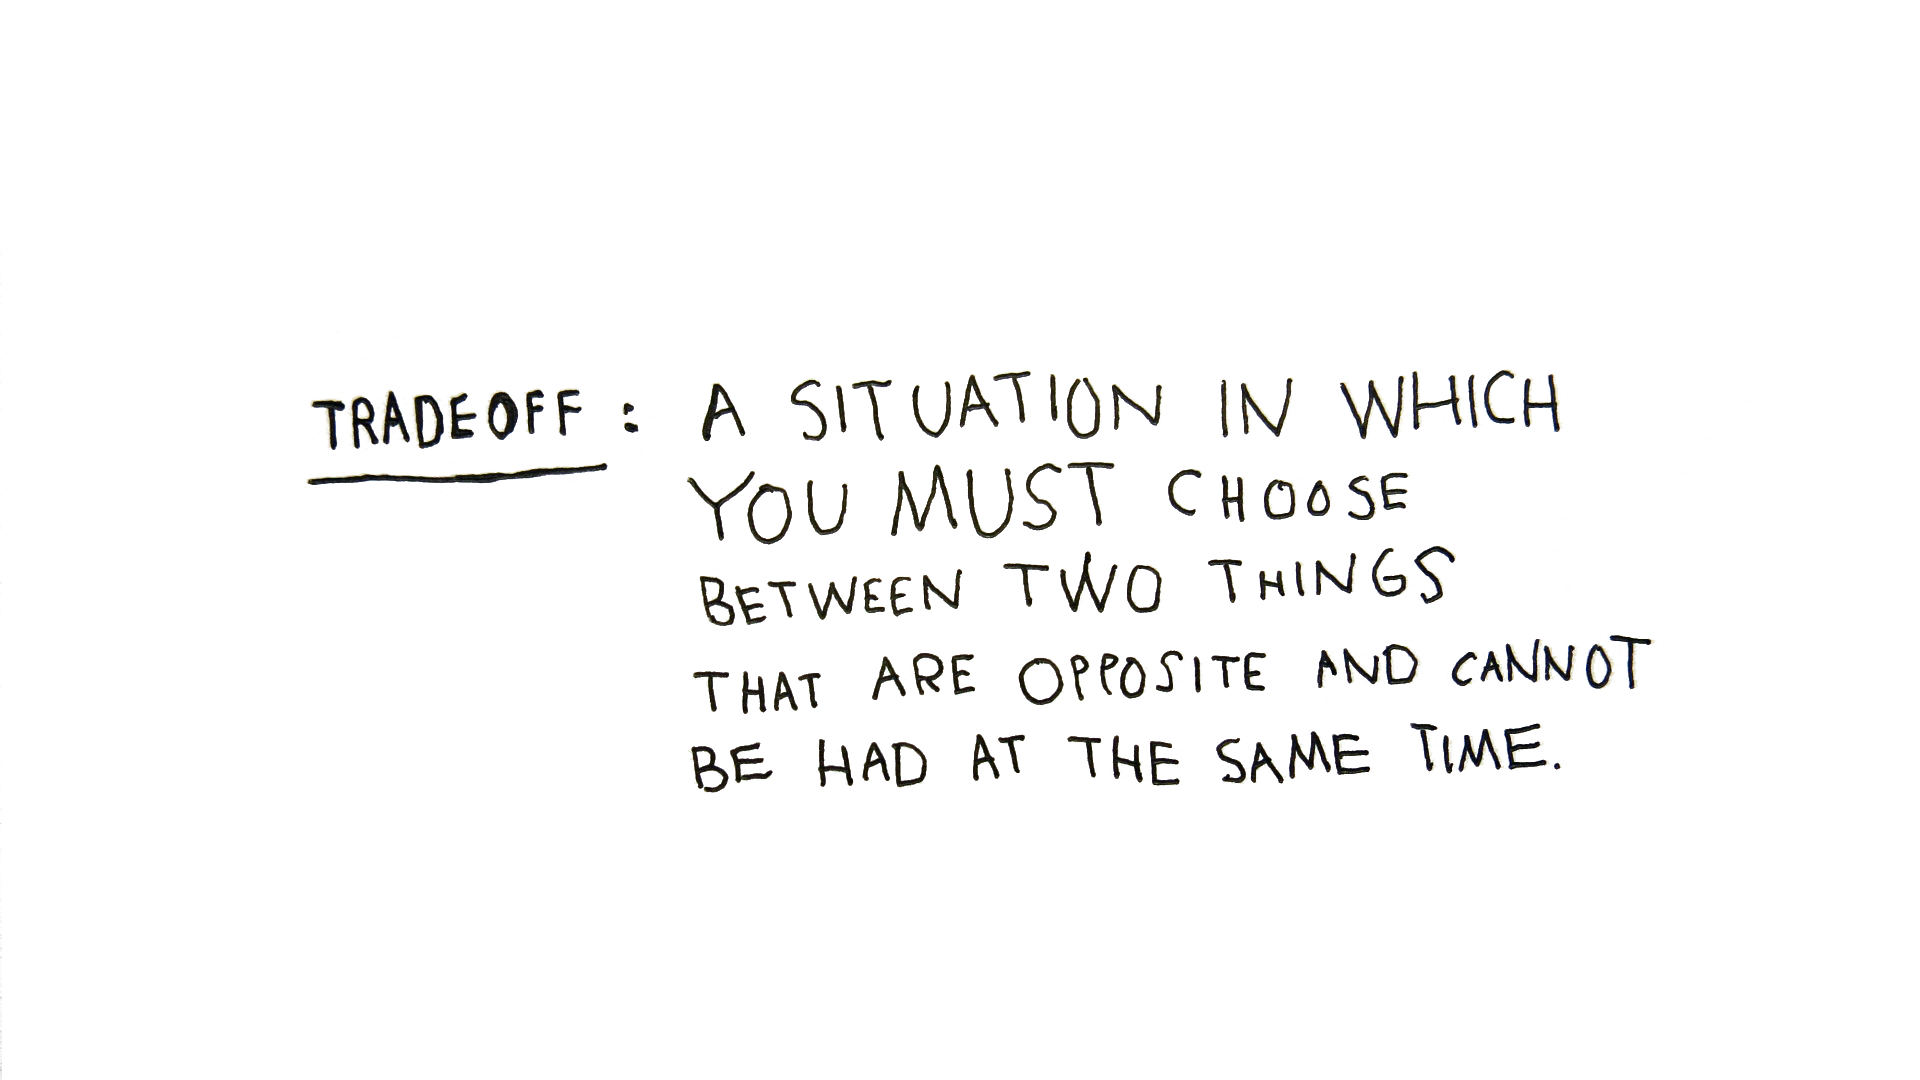 TRADEOFF : A SITUATION IN WHICH
YOU MUST CHOOSE
BETWEEN TWO THINGS
THAT ARE OPPOSITE AND CANNOT
BE HAD AT THE SAME TIME.